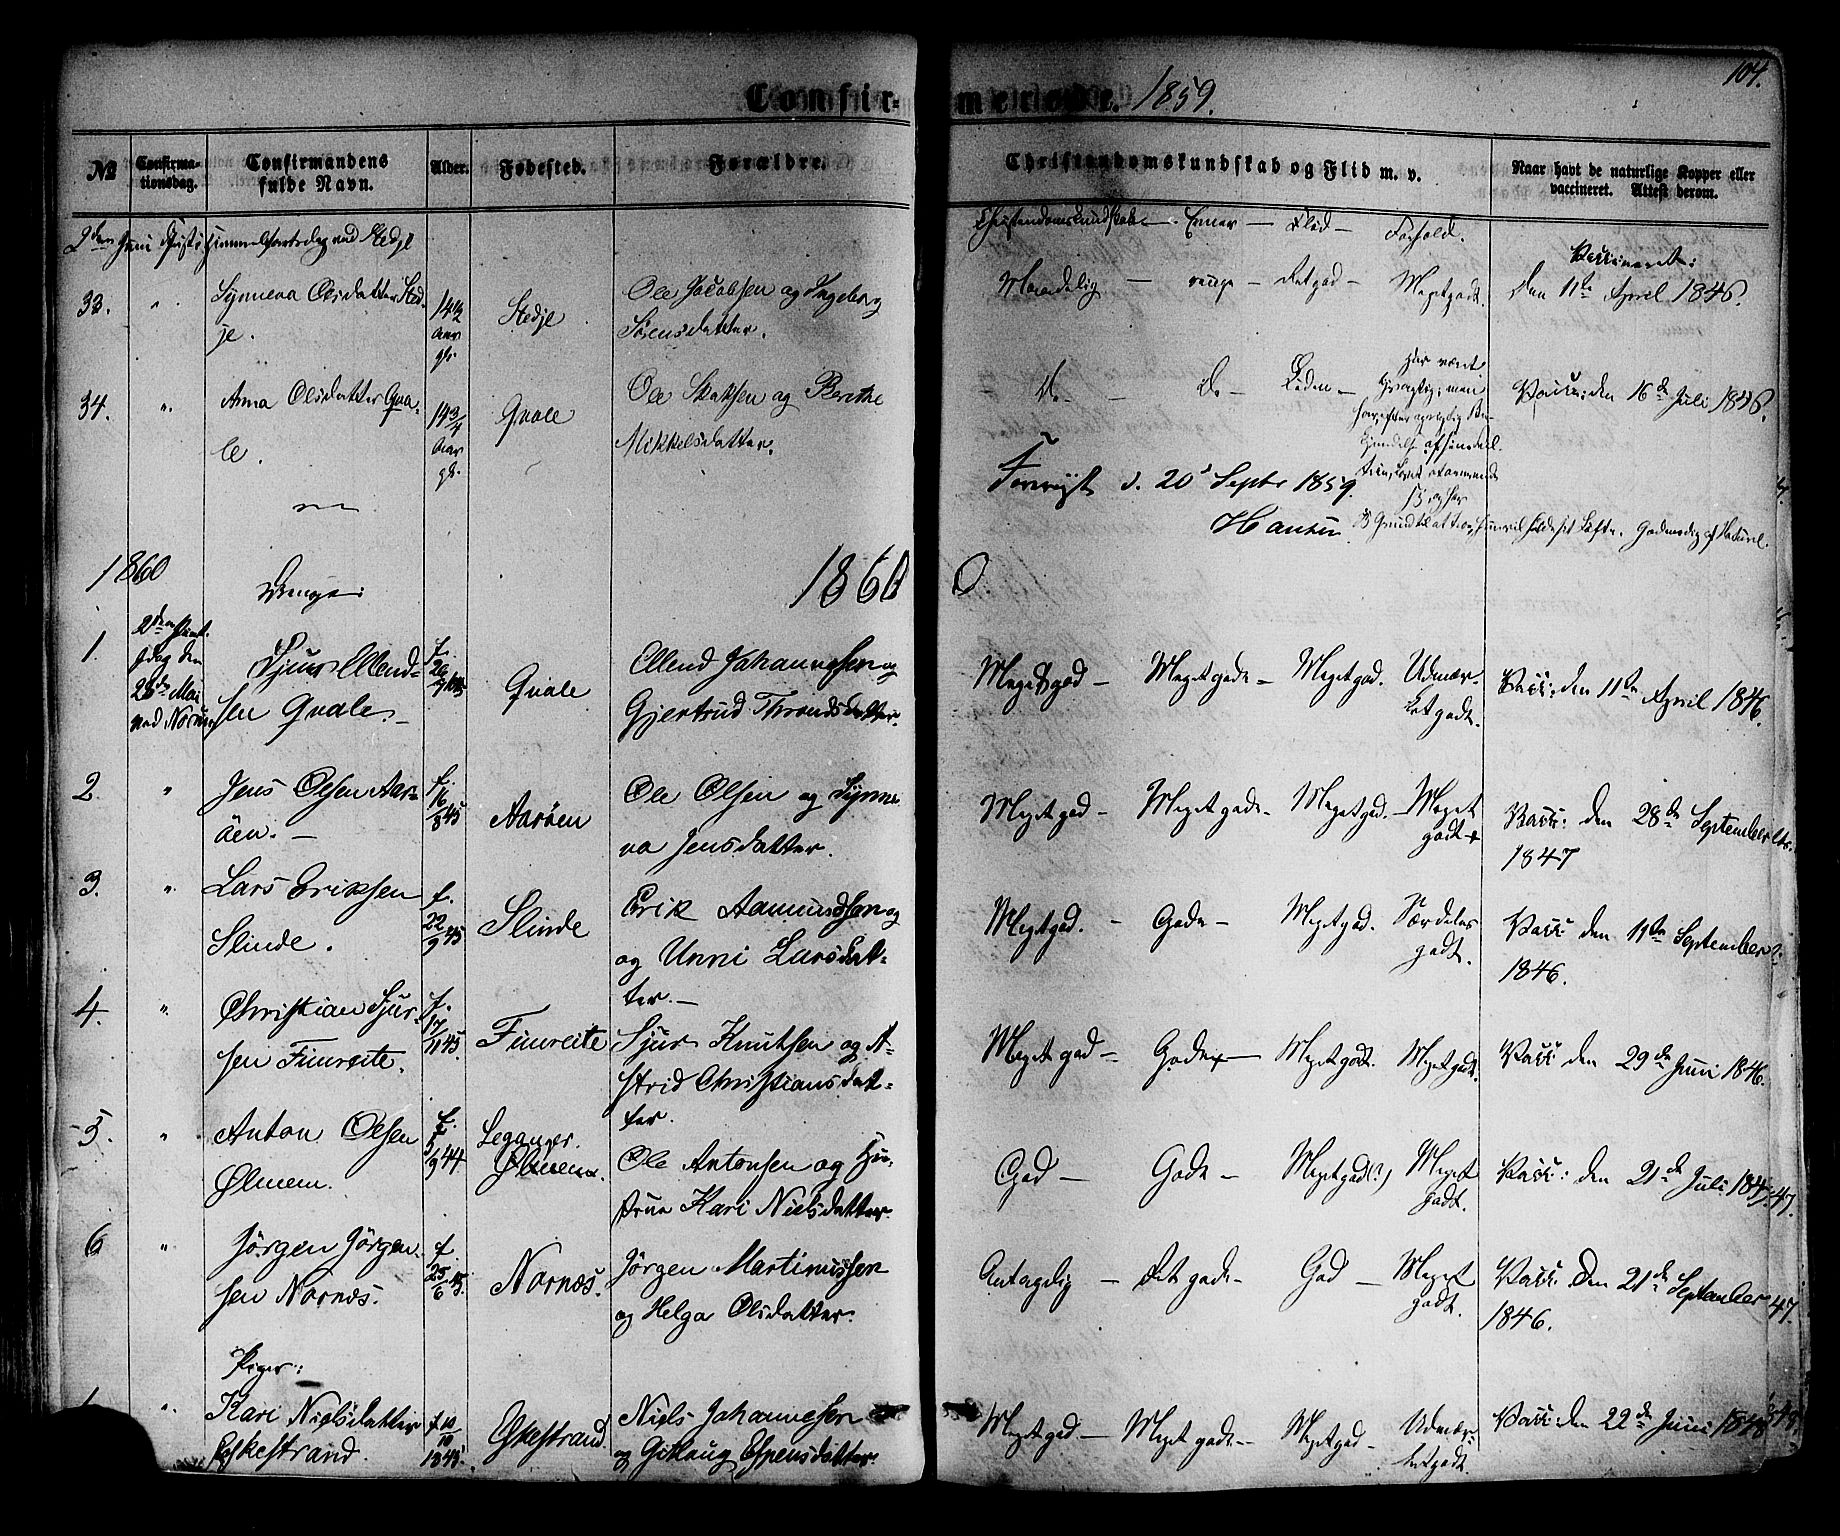 104.
Confirmerede. 1859.
No
Confirmationsdag.
Confirmandens fulde Navn.
Alder.
Fødested.
Forældre.
Christendomskundskab og Flid m. v.
Naar havt de naturlige Kopper eller vaccineret. Attest derom.
2den Juni Christi Himmelfartsdag ved Stedje
Christendomskundskab – Evner – Flid – Forhold.
Vaccineret:
33. " Synneva Olsdatter Sted-
je.
14½ Aar gl.
Stedje
Ole Jacobsen og Ingeborg
Sørensdatter.
Maadelig – ringe – Det god – Meget godt.
Den 11te April 1846.
34. " Anna Olsdatter Qva-
le.
14¾ Aar gl.
Qvale
Ole Skaksen og Berithe
Mikkelsdatter.
Do – Do – Liden –
Har været
Vacc: den 16de Juli 1846.
d. 20 Septr 1859.
Hansen
1860
Drenge:
1860
1. 2den Pint-
sedag den
28de Mai
ved Norum
Sjur Ellend-
sen Qvale. –
f. 26/7 1845
Qvale
Ellend Johannesen og
Gjertrud Throndsdatter.
Meget god – Meget gode – Meget god. Udmær-
ket godt.
Vacc: den 11te April 1846.
2. " Jens Olsen Aar-
öen. –
f. 16/8 45
Aaröen
Ole Olsen og Synne
va Jensdatter.
Meget god – Meget gode – Meget god. – Meget
godt
Vacc: den 28de September
1847
3. " Lars Eriksen
Slinde.
f. 22/9 45
Slinde
Erik Aamundsen og
og Unni Larsdat-
ter. –
Meget god. – Gode – Meget god. Særdeles
godt.
Vacc: den 11te September
1846.
4. " Christian Sjur-
sen Fimreite.
f. 17/11 45
Fimreite
Sjur Knutsen og A-
strid Christiansdat-
ter.
Meget god – Gode – Meget godt. Meget godt.
Vacc den 29de Juni 1846.
5. " Anton Olsen
Ølmem.
f. 5/9 44
Leganger.
Ølmem.
Ole Antonsen og Hu-
strue Kari Nielsdatter.
God – Gode – Meget god(?) Meget
godt.
Vacc: den 21de Juli 1847.
47.
6 " Jörgen Jörgen-
sen Nornæs.
f. 25/6 45.
Nornæs.
Jörgen Martinussen
og Helga Olsdatter.
Antagelig – Det gode – God – Meget
godt.
Vacc: Den 21de September
1846.
47.
Piger:
1 " Kari Nielsdatter
Eskestrand.
f. 10/10 1845.
Eskestrand
Niels Johannesen
og Gitlaug Espensdatter.
Meget god – Meget gode – Meget god – Udmær-
ket godt.
Vacc: den 22de Juni 1848